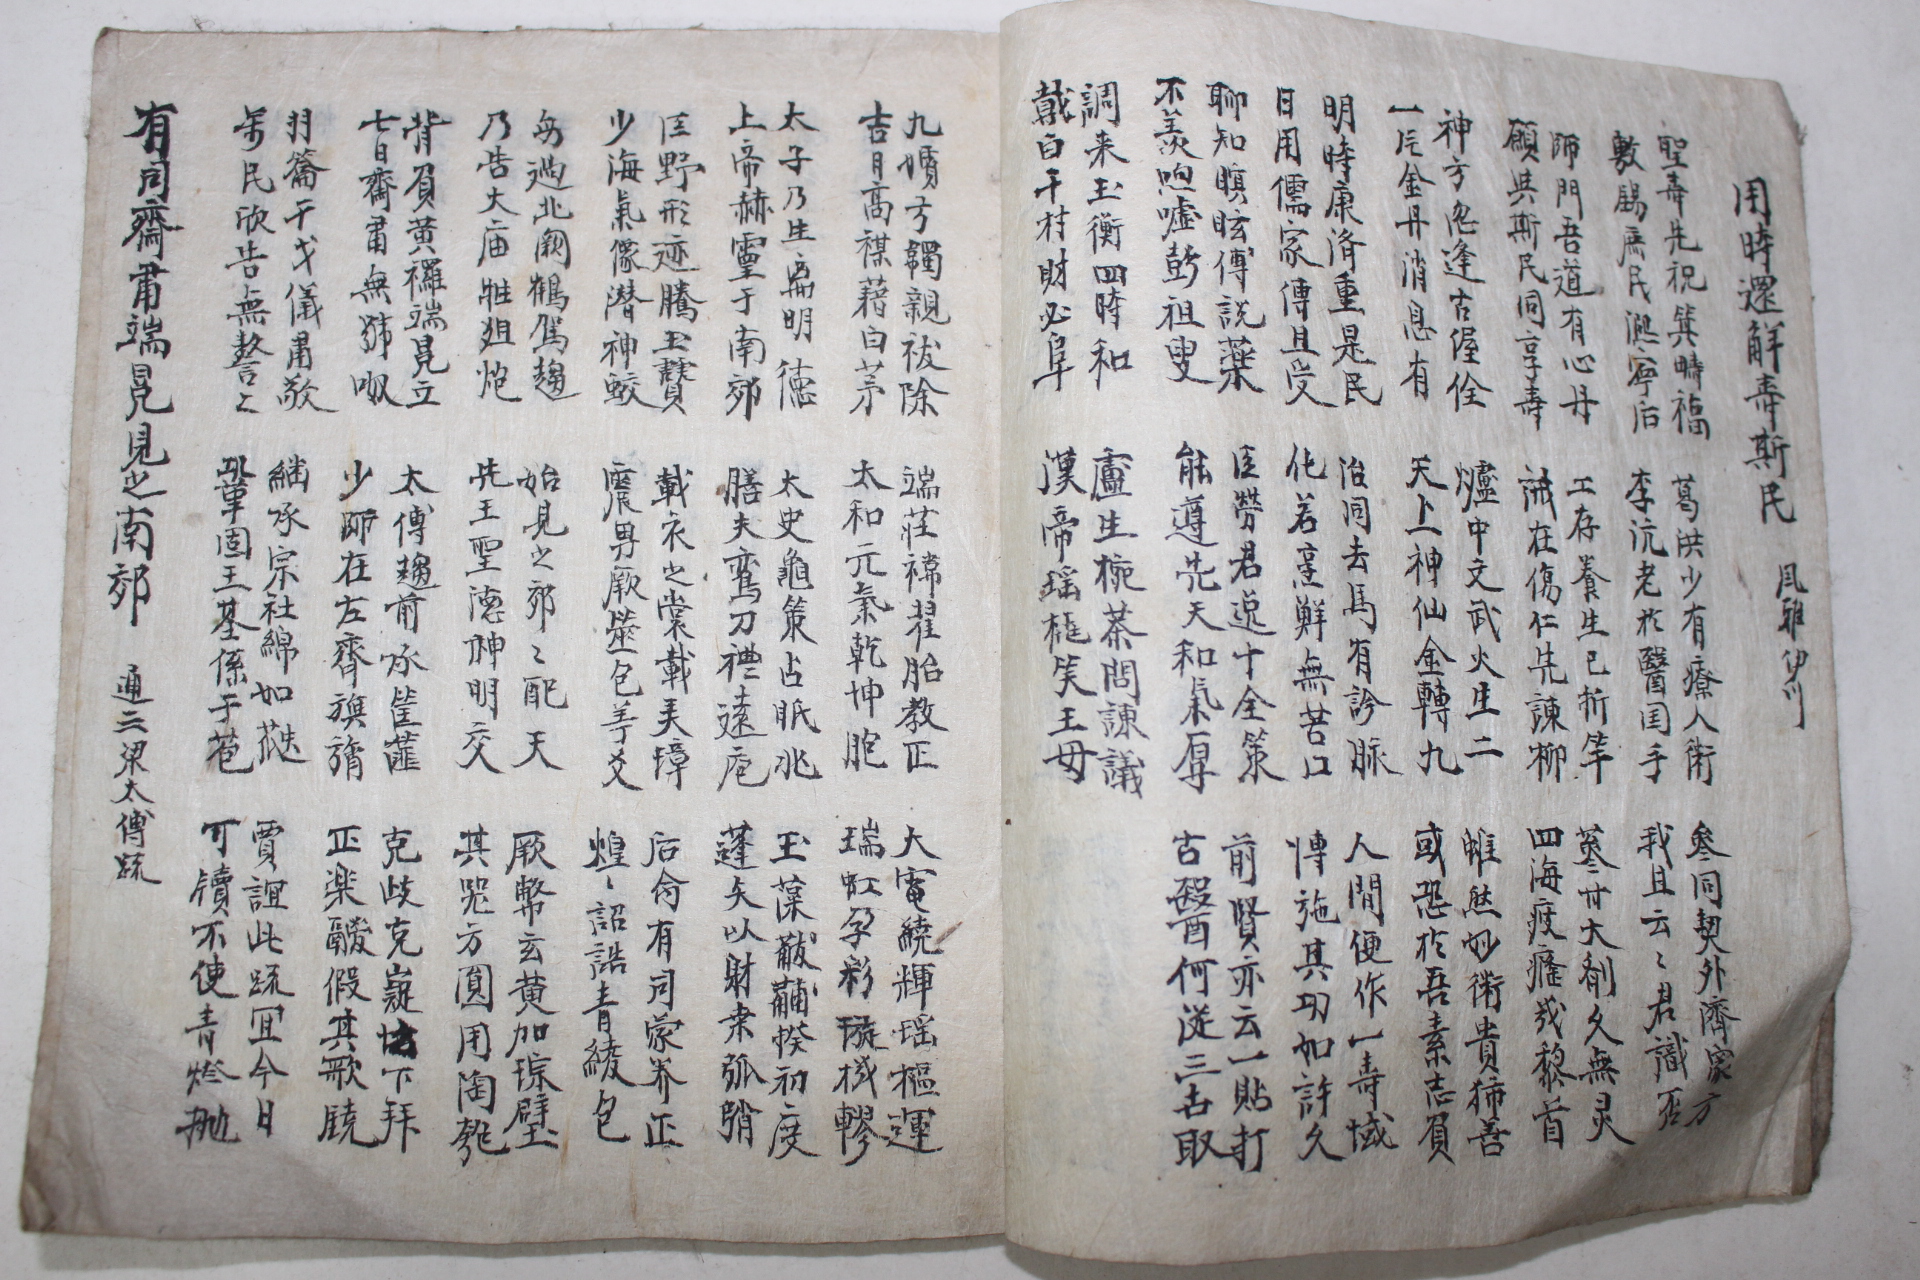 用時還解壽斯民 風雅伊川
聖壽先祝箕疇福
敷錫庶民寧后
葛洪少有療人術
李沆老於醫国手
參同契外濟家方
我且云〻君識否
師門吾道有心丹
願與斯民同享壽
工存養生已折竿
誡在傷仁先諫柳
大劑久無灵
四海疲癃哉黎首
神方忽逢古偓佺
一片金丹消息有
爐中文武火生二
天上神仙金轉九
雖然妙術貴兼善
或恐於吾素志負
明時康濟重是民
日用儒家傳且受
治同去馬有診脉
化若烹鮮無苦口
人間便作一壽域
博施其功如許久
聊知瞑眩傅説藥
不羨呴噓彭祖叟
臣勞君逸十全策
能遵先天和氣厚
前賢亦云一貼打
古醫何從三古取
調来玉衡四時和
戴白千村財必阜
盧生椀茶問諫議
漢帝瑶笑王母
九嬪弓韣親祓除
吉月高禖藉白茅
端莊褘翟胎教正
太和元氣乾坤胞
大電繞輝瑶樞運
瑞虹孕彩璇轇
太子乃生离明德
上帝赫靈于南郊
太史龜策占眂兆
膳夫鸞刀禮遠庖
玉藻黻黼揆初度
蓬矢以射桑弧弰
野形迹騰玉
少海氣像潜神鮫
載衣之裳載美璋
震男厥筮包羊爻
后命有司蒙养正
煌〻詔誥青綾包
每過北闕鶴駕趨
乃告大庙牲俎炮
始見之郊〻配天
先王聖德神明交
厥幣玄黄加琮璧
其器方圓用陶匏
背負黄襁端冕立
七日齋肅無號呶
太傅趨前承筐篚
少師在左齊旗旓
克歧克嶷下拜
正楽假其歌
羽籥干戈儀肅敬
万民欣告無謷〻
繼承宗社綿如瓞
鞏固王基係于苞
賈誼此疏宜今日
可牘不使青燈抛
有司齊肅端冕見之南郊 通三梁太傅疏